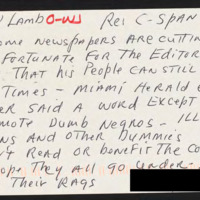 Lamb O-WS Re: C-SPAN
ome Newspapers Are Cuttin
Fortunate For The Editor
That his People Can Still
Times - Miami Herald e
er Said A Word Except
mote Dumb Negros - Ill
ns And Other Dummies
't Read or Benefit The Co
op. They All go Under-
Their Rags